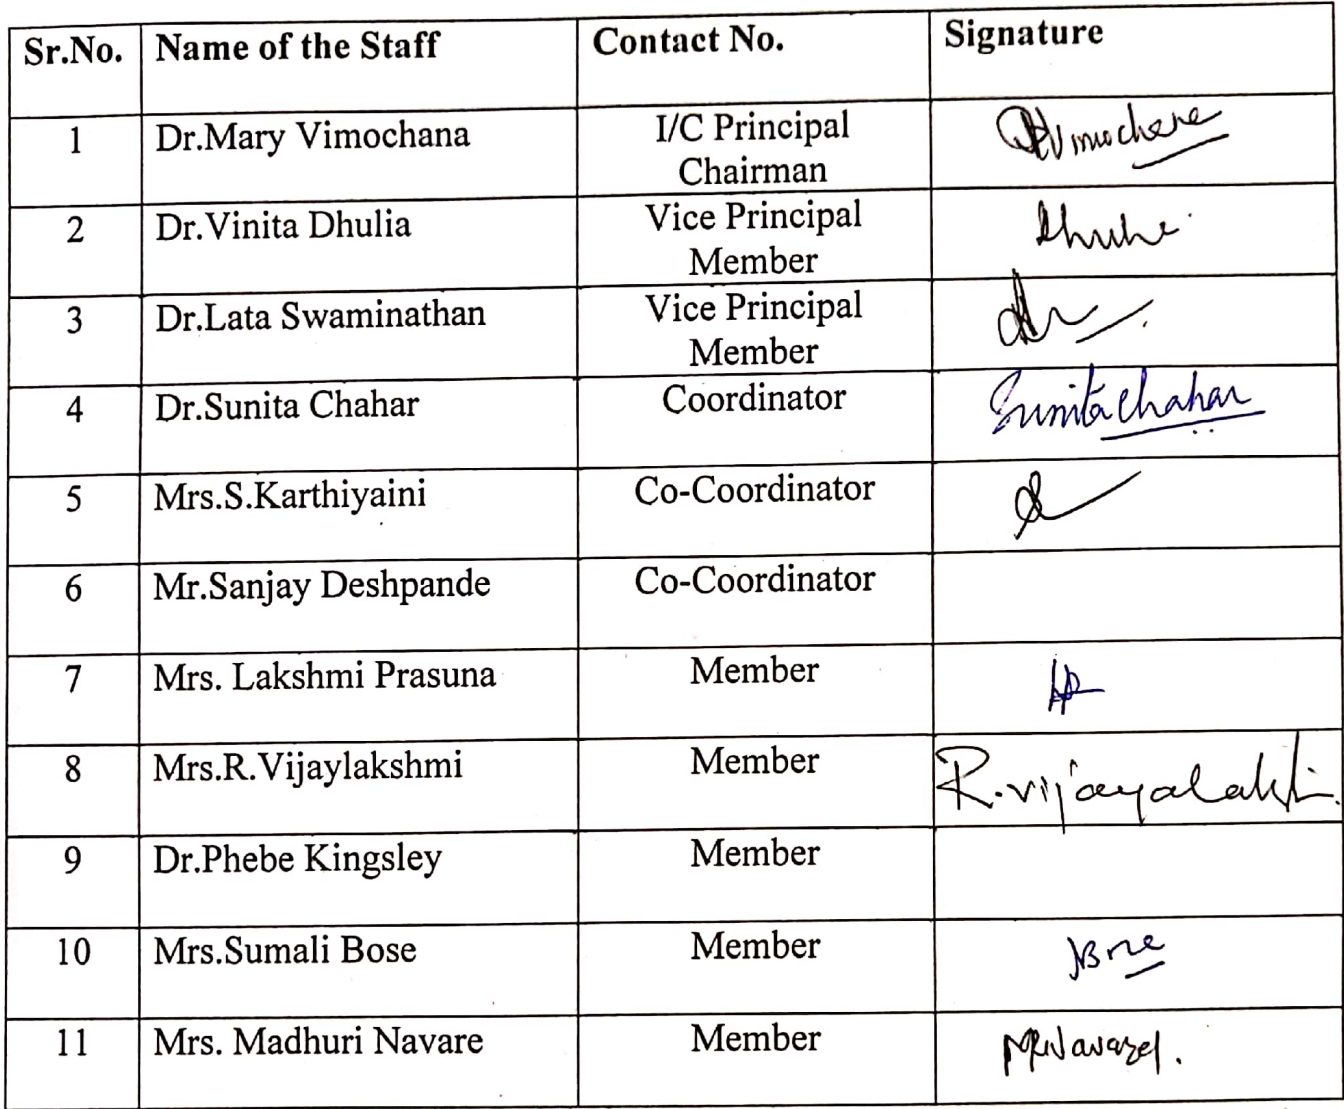 Sr.No. Name of the Staff Contact No. Signature
1 Dr.Mary Vimochana I/C Principal
Chairman
2 Dr.Vinita Dhulia Vice Principal
Member
3 Dr.Lata Swaminathan Vice Principal
Member
4 Dr.Sunita Chahar Coordinator Sunita Chahar
5 Mrs.S.Karthiyaini Co-Coordinator
6 Mr.Sanjay Deshpande Co-Coordinator
7 Mrs. Lakshmi Prasuna Member
8 Mrs.R.Vijaylakshmi Member R.vijayalakshmi
9 Dr.Phebe Kingsley Member
10 Mrs.Sumali Bose Member
11 Mrs. Madhuri Navare Member